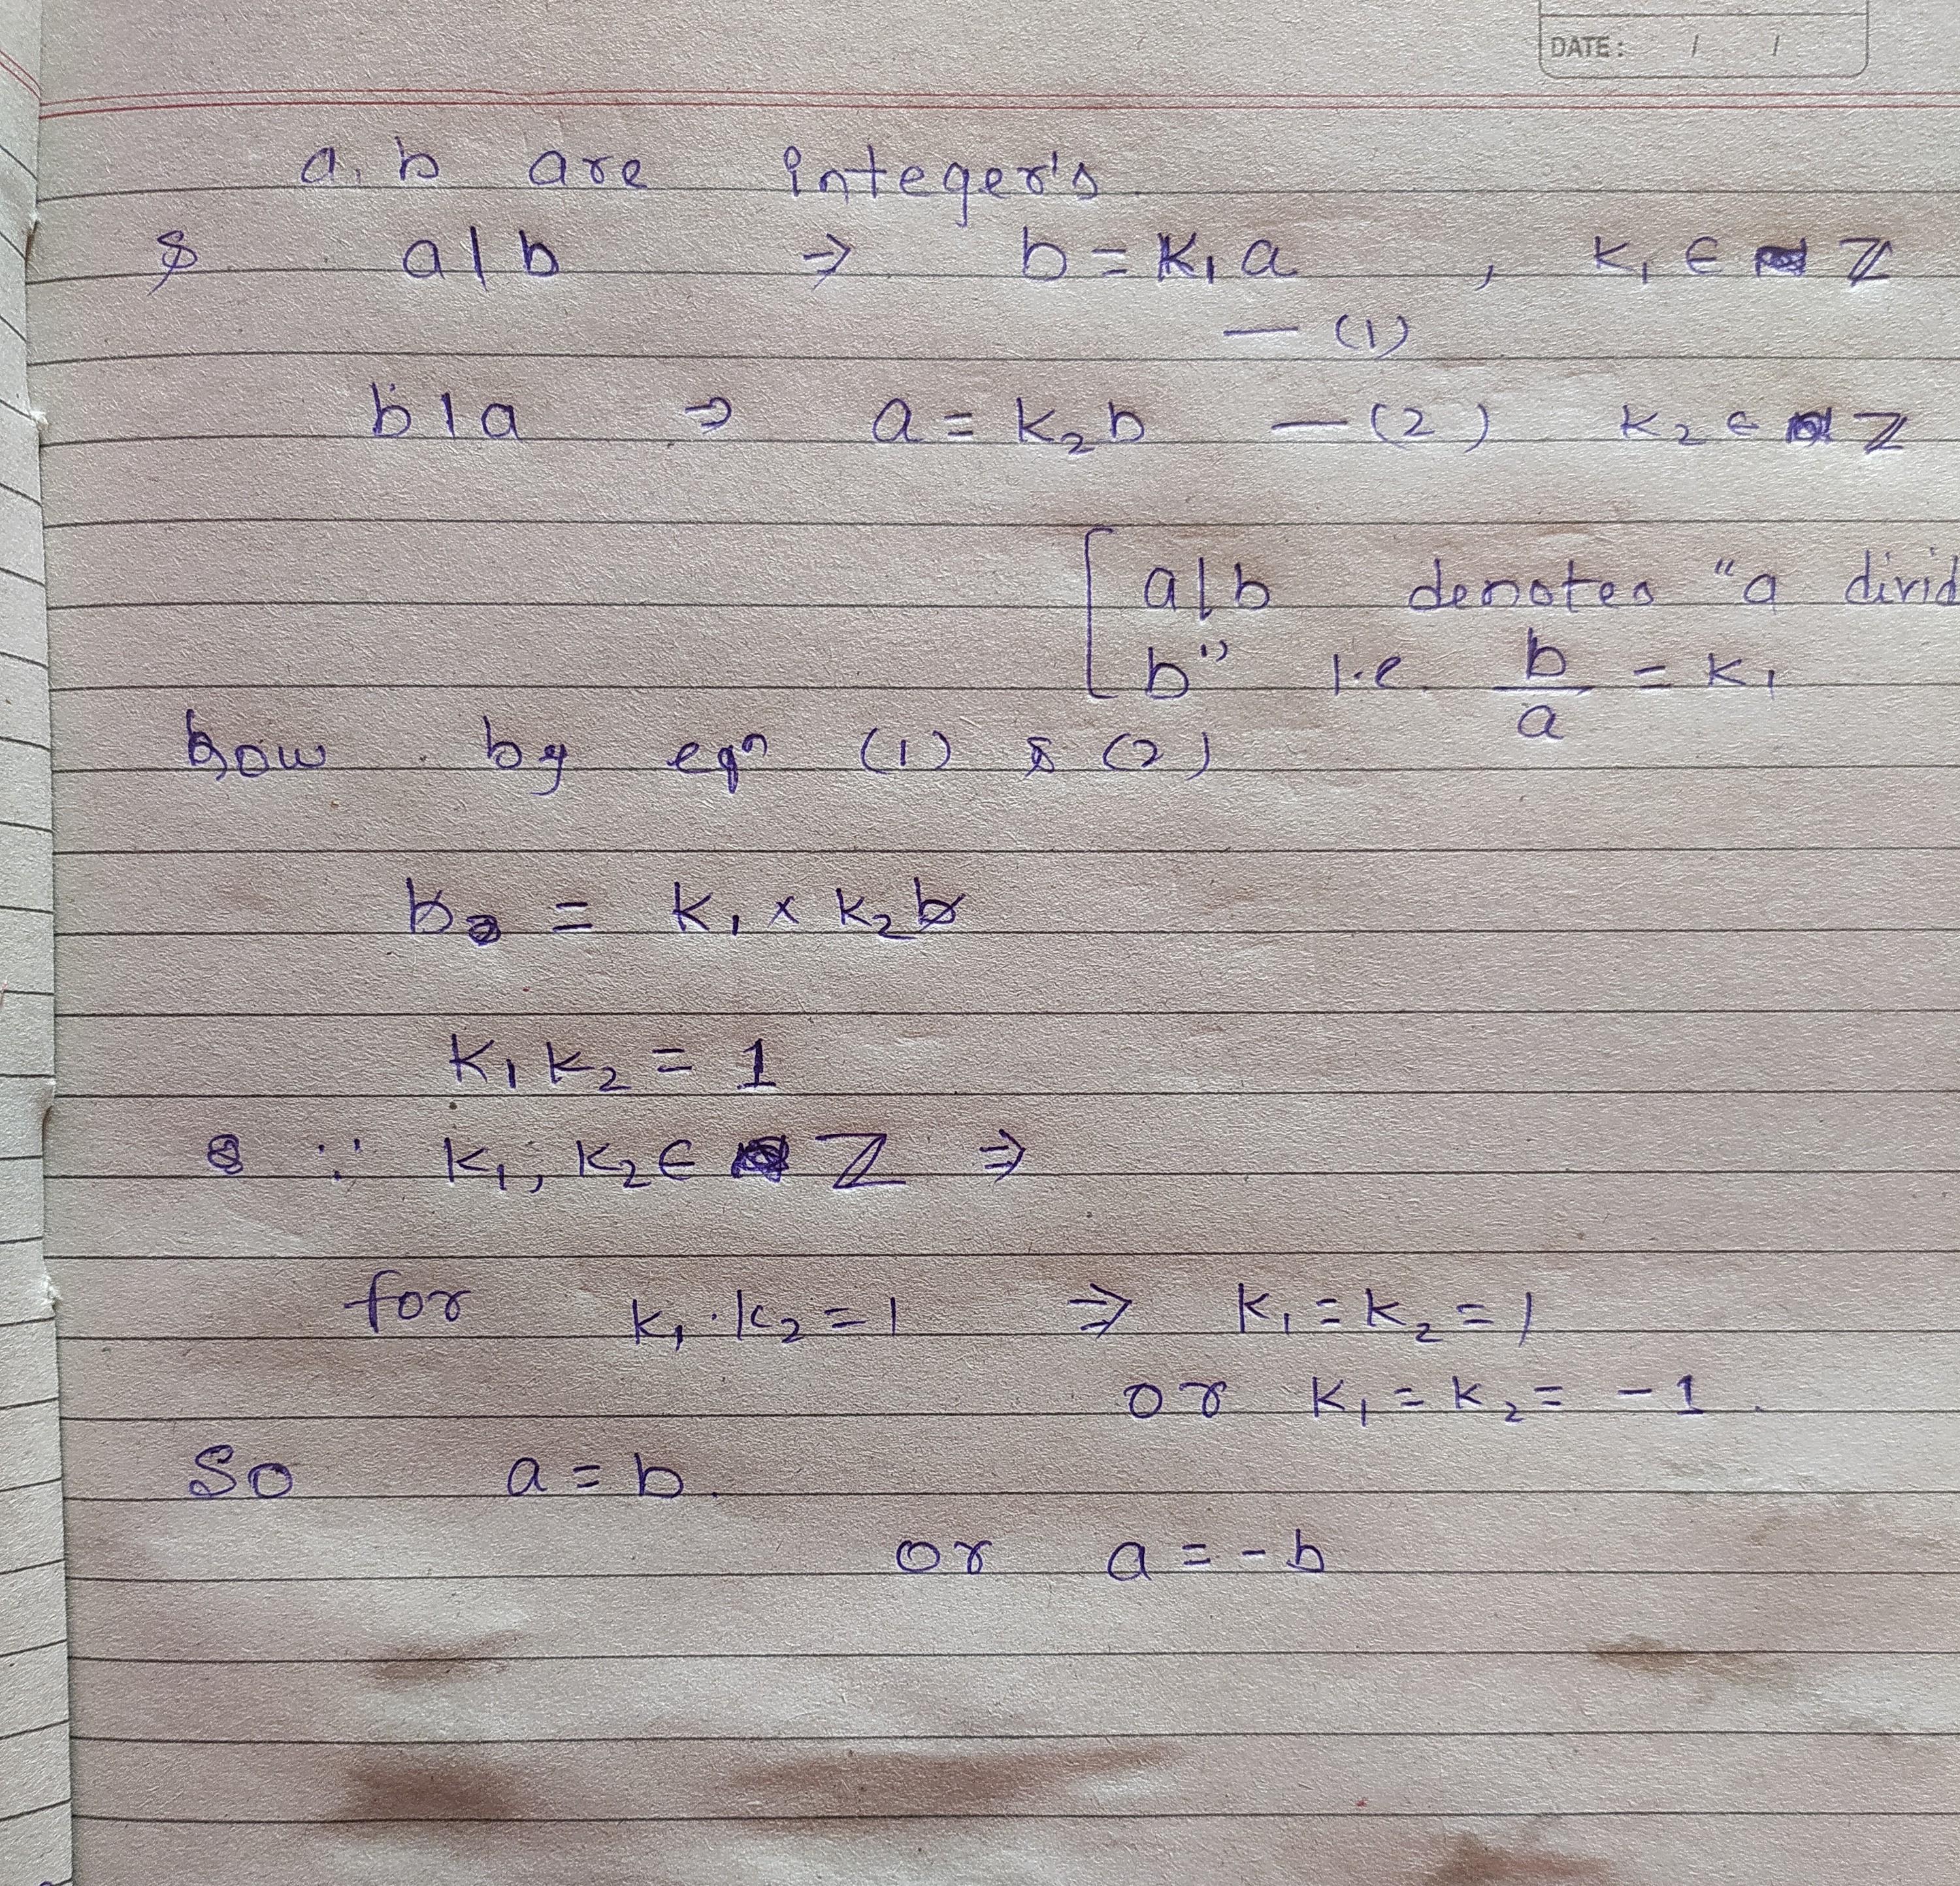 DATE: / /
a, b are integer's
& a|b ⇒ b = K₁a , K₁ ∈ ℤ
— (1)
b|a ⇒ a = K₂b — (2) K₂ ∈ ℤ
[ a|b denotes "a divid
b" i.e. b/a = K₁
Now by eqⁿ (1) & (2)
b = K₁ × K₂b
K₁K₂ = 1
∵ K₁, K₂ ∈ ℤ ⇒
for K₁·K₂ = 1 ⇒ K₁ = K₂ = 1
or K₁ = K₂ = -1.
So a = b.
or a = -b